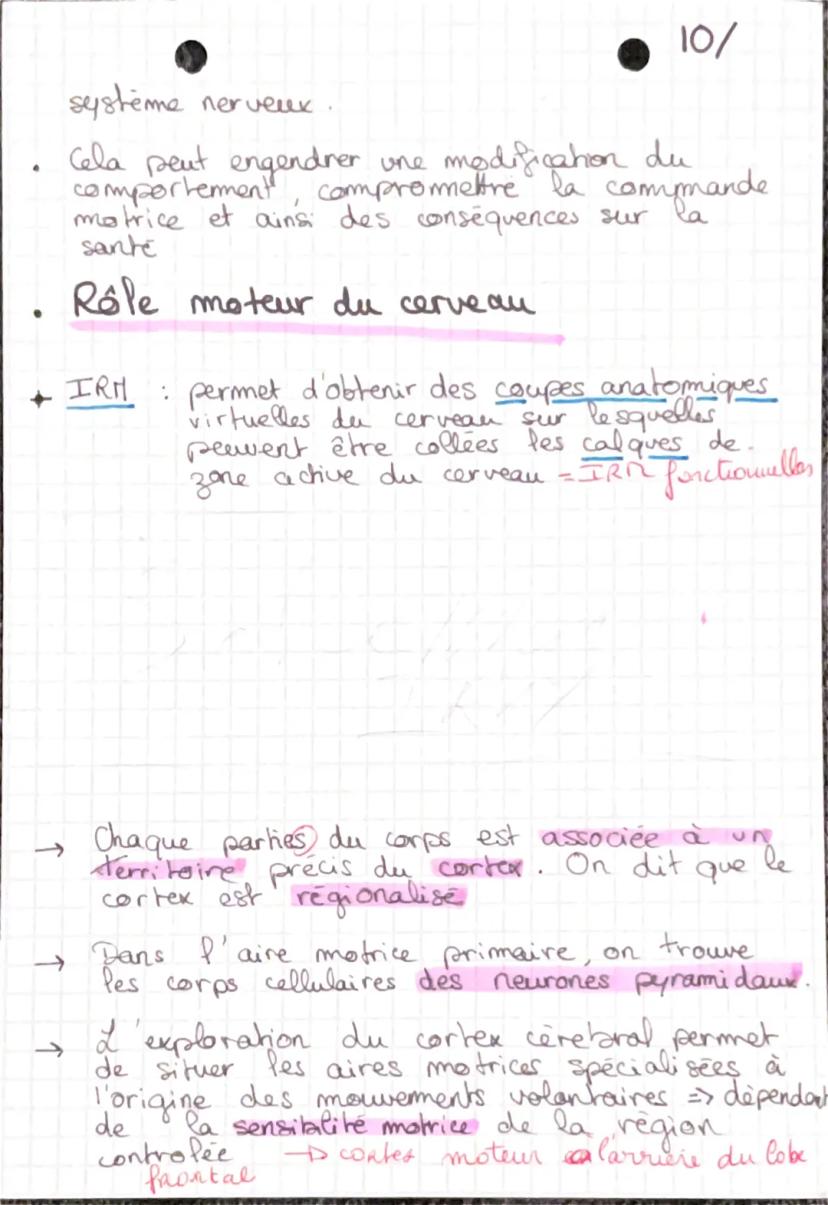 10/
système nerveux.
. Cela peut engendrer une modification du
comportement, compromettre la commande
motrice et ainsi des conséquences sur la
santé
. Rôle moteur du cerveau
+ IRM : permet d'obtenir des coupes anatomiques
virtuelles du cerveau sur lesquelles
peuvent être collées les calques de
zone active du cerveau = IRM fonctionnelles
→ Chaque parties du corps est associée à un
territoire précis du cortex. On dit que le
cortex est régionalisé
→ Dans l'aire motrice primaire, on trouve
les corps cellulaires des neurones pyramidaux.
→ L'exploration du cortex cérébral permet
de situer les aires motrices spécialisées à
l'origine des mouvements volontaires => dépendant
de la sensibilité motrice de la région
controlée → cortex moteur à l'arrière du lobe
frontal